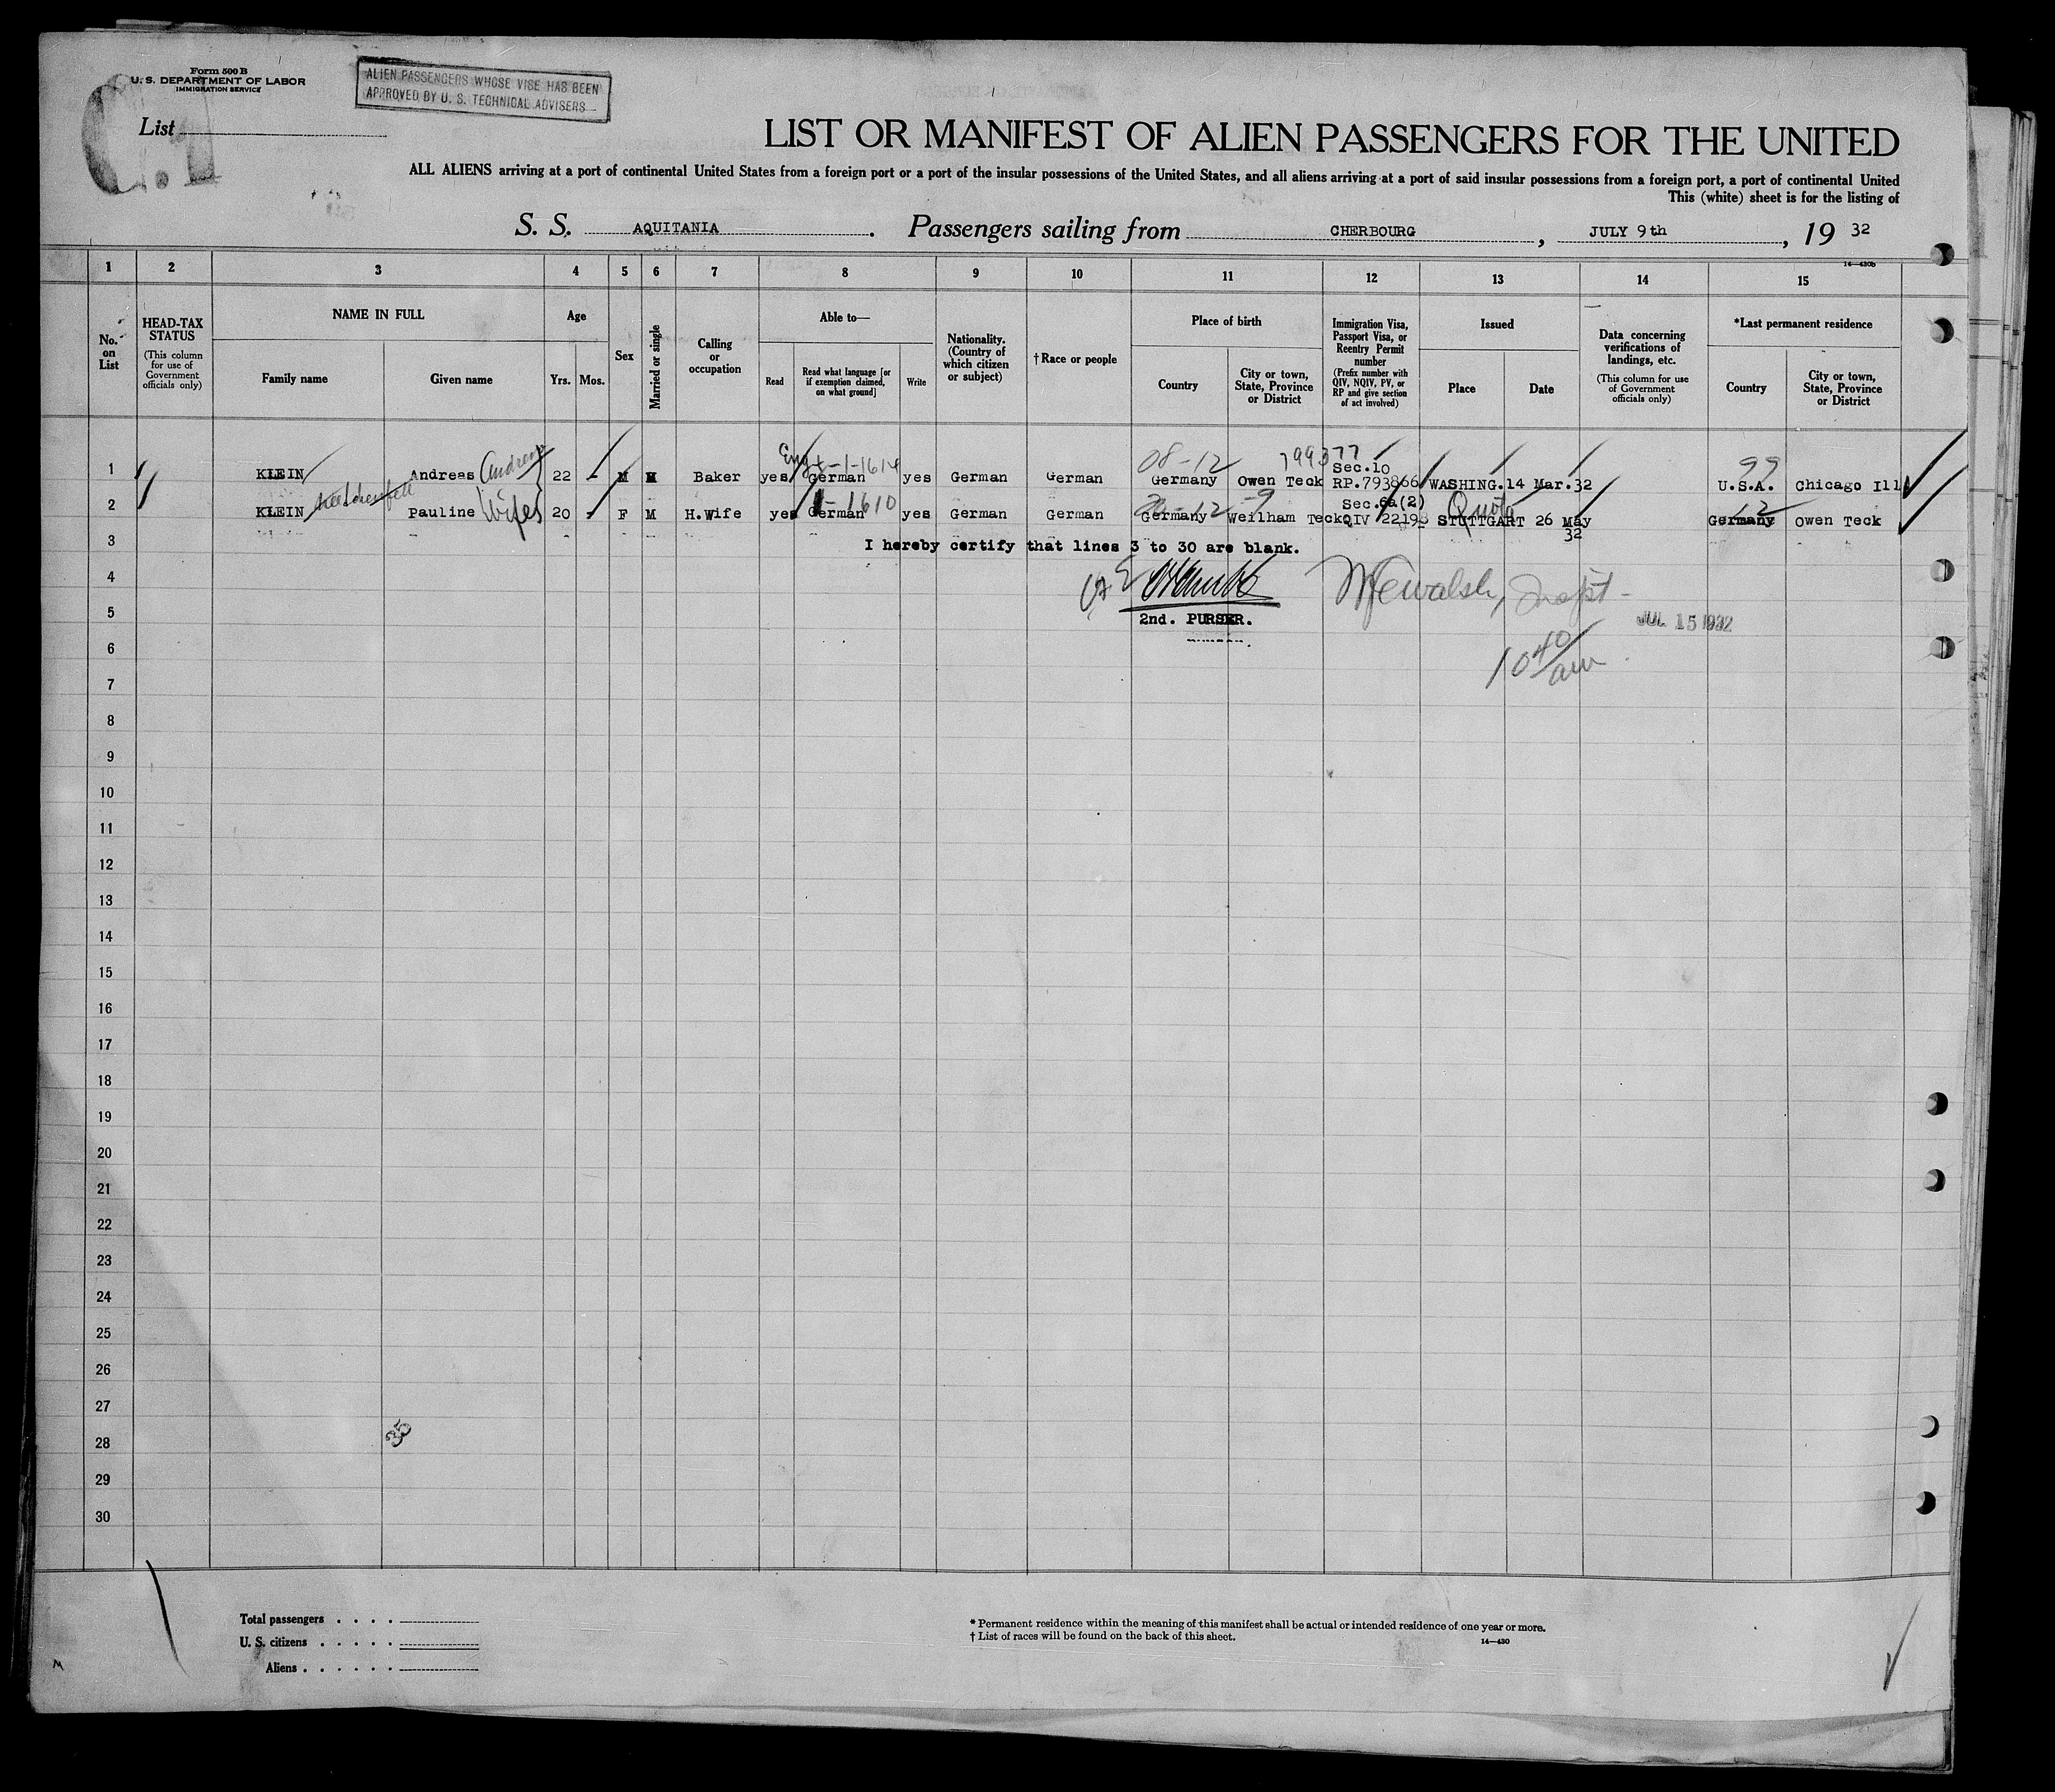 Form 500 B
U. S. DEPARTMENT OF LABOR
IMMIGRATION SERVICE
ALIEN PASSENGERS WHOSE VISE HAS BEEN
APPROVED BY U. S. TECHNICAL ADVISERS
List
LIST OR MANIFEST OF ALIEN PASSENGERS FOR THE UNITED
ALL ALIENS arriving at a port of continental United States from a foreign port or a port of the insular possessions of the United States, and all aliens arriving at a port of said insular possessions from a foreign port, a port of continental United
This (white) sheet is for the listing of
S. S. AQUITANIA. Passengers sailing from CHERBOURG, JULY 9th, 19 32
14—430b
1 2 3 4 5 6 7 8 9 10 11 12 13 14 15
No. on List
HEAD-TAX STATUS
(This column for use of Government officials only)
NAME IN FULL
Family name
Given name
Age
Yrs.
Mos.
Sex
Married or single
Calling or occupation
Able to—
Read
Read what language [or if exemption claimed, on what ground]
Write
Nationality. (Country of which citizen or subject)
†Race or people
Place of birth
Country
City or town, State, Province or District
Immigration Visa, Passport Visa, or Reentry Permit number
(Prefix number with QIV, NQIV, PV, or RP and give section of act involved)
Issued
Place
Date
Data concerning verifications of landings, etc.
(This column for use of Government officials only)
*Last permanent residence
Country
City or town, State, Province or District
Eng 1-1614 08-12 799377 99
Sec.10
1 KLEIN Andreas Andreas 22 - M M Baker yes German yes German German Germany Owen Teck RP.793866 WASHING. 14 Mar.32 U.S.A. Chicago Ill
1-1610 12 -9 Sec.6a(2) Quota 12
2 KLEIN Pauline Wife 20 - F M H.Wife yes German yes German German Germany Weilham Teck QIV 22198 STUTTGART 26 May 32 Germany Owen Teck
3 I hereby certify that lines 3 to 30 are blank.
4
5 2nd. PURSER.
Walsh, Inspt-
JUL 15 1932
10 40/am
6
7
8
9
10
11
12
13
14
15
16
17
18
19
20
21
22
23
24
25
26
27
28
35
29
30
Total passengers . . . .
U. S. citizens . . . . .
Aliens . . . . . .
* Permanent residence within the meaning of this manifest shall be actual or intended residence of one year or more.
† List of races will be found on the back of this sheet.
14—430